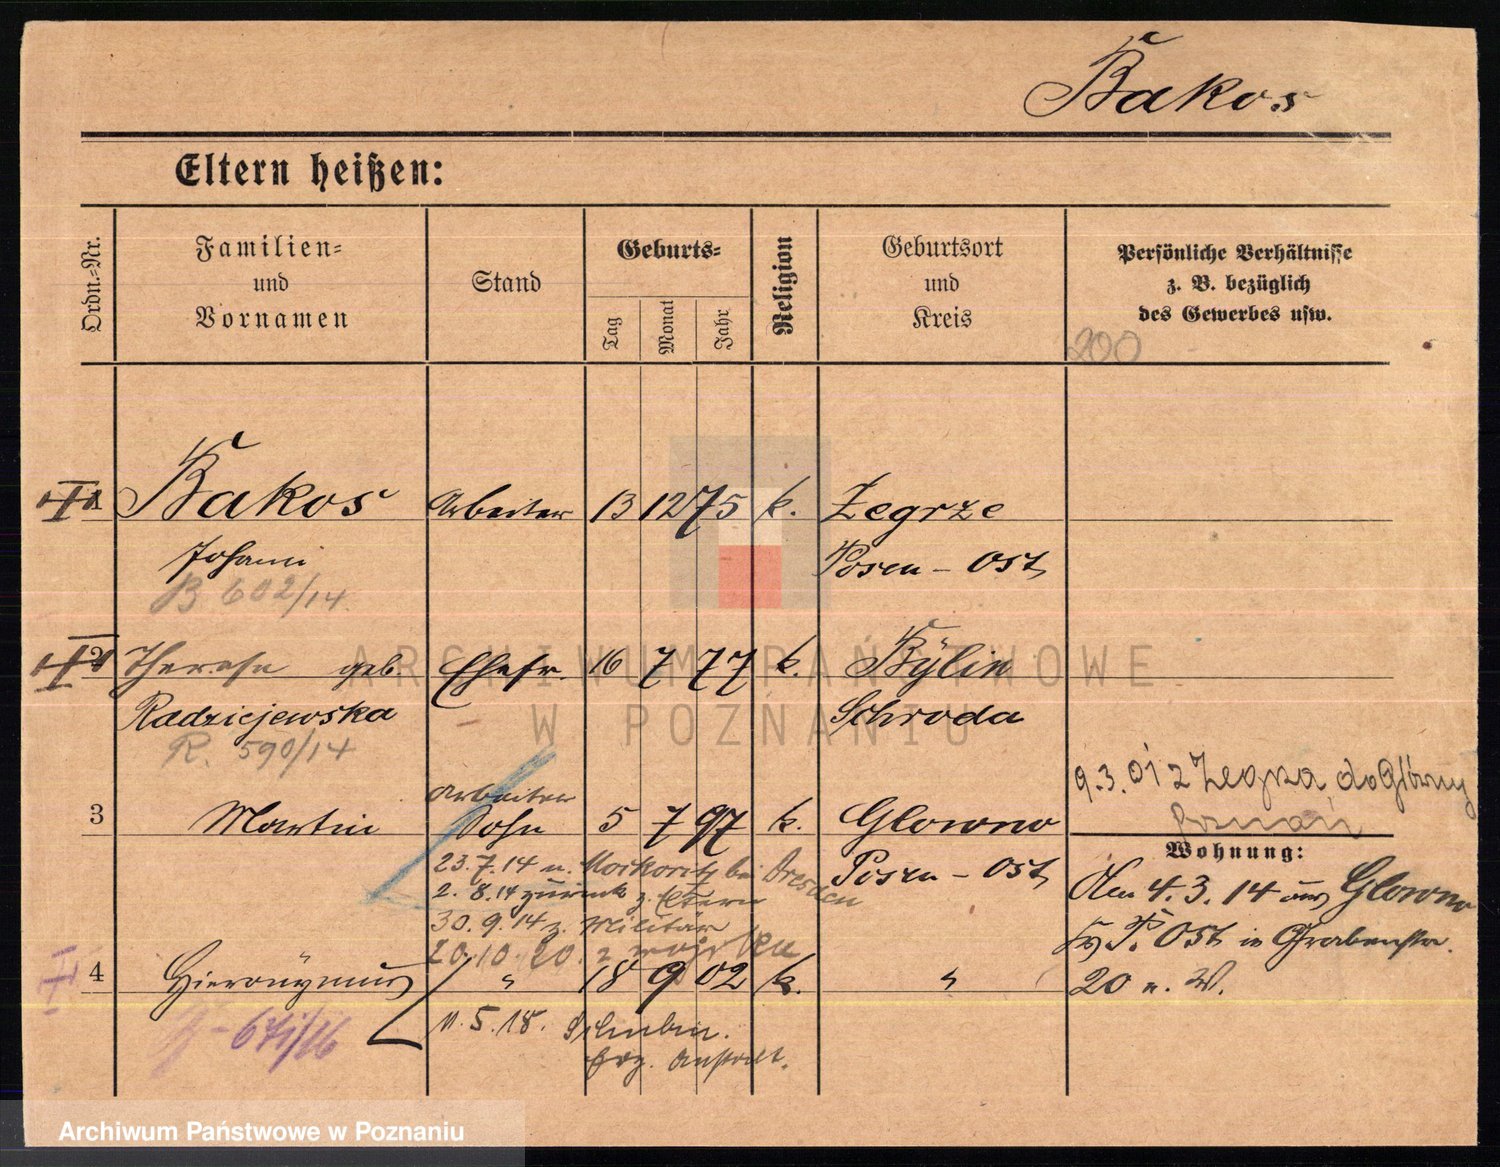 Bakos
Eltern heißen:
Ordn.=Nr.
Familien=
und
Vornamen
Stand
Geburts=
Tag
Monat
Jahr
Religion
Geburtsort
und
Kreis
Persönliche Verhältnisse
z. B. bezüglich
des Gewerbes usw.
200
1 Bakos Arbeiter 13 12 75 k. Zegrze
Johann Posen - Ost
B 602/14
2 Therese geb. Ehefr. 16 7 77 k.
Radziejewska Schroda
R. 590/14
9.3.
Arbeiter
3 Martin Sohn 5 7 97 k. Glowno
Wohnung:
Posen - Ost
23.7.14 n. bei Dresden
2.8.14 zurück z. Eltern
30.9.14 z. Militär
20.10.20. z
Den 4.3.14 aus Glowno
Kr P. Ost in Grabenstr.
20 n. W.
4 Hieronymus " 18 9 02 k. "
671/16
11.5.18. Schubin.
Erz. Anstalt.
ARCHIWUM PAŃSTWOWE
W POZNANIU
Archiwum Państwowe w Poznaniu